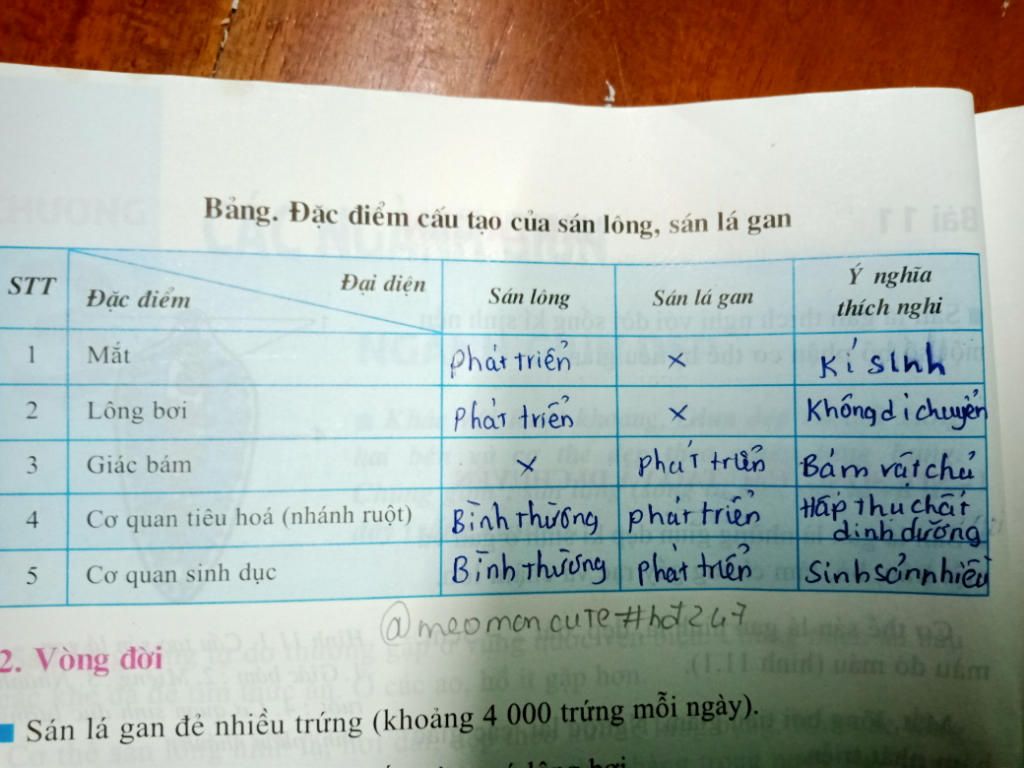 Bảng. Đặc điểm cấu tạo của sán lông, sán lá gan
STT Đặc điểm Đại diện Sán lông Sán lá gan Ý nghĩa thích nghi
1 Mắt Phát triển x Kí sinh
2 Lông bơi Phát triển x Không di chuyển
3 Giác bám x phát triển Bám vật chủ
4 Cơ quan tiêu hoá (nhánh ruột) Bình thường phát triển Hấp thu chất dinh dưỡng
5 Cơ quan sinh dục Bình thường phát triển Sinh sản nhiều
@meomoncute#hd247
2. Vòng đời
Sán lá gan đẻ nhiều trứng (khoảng 4 000 trứng mỗi ngày).